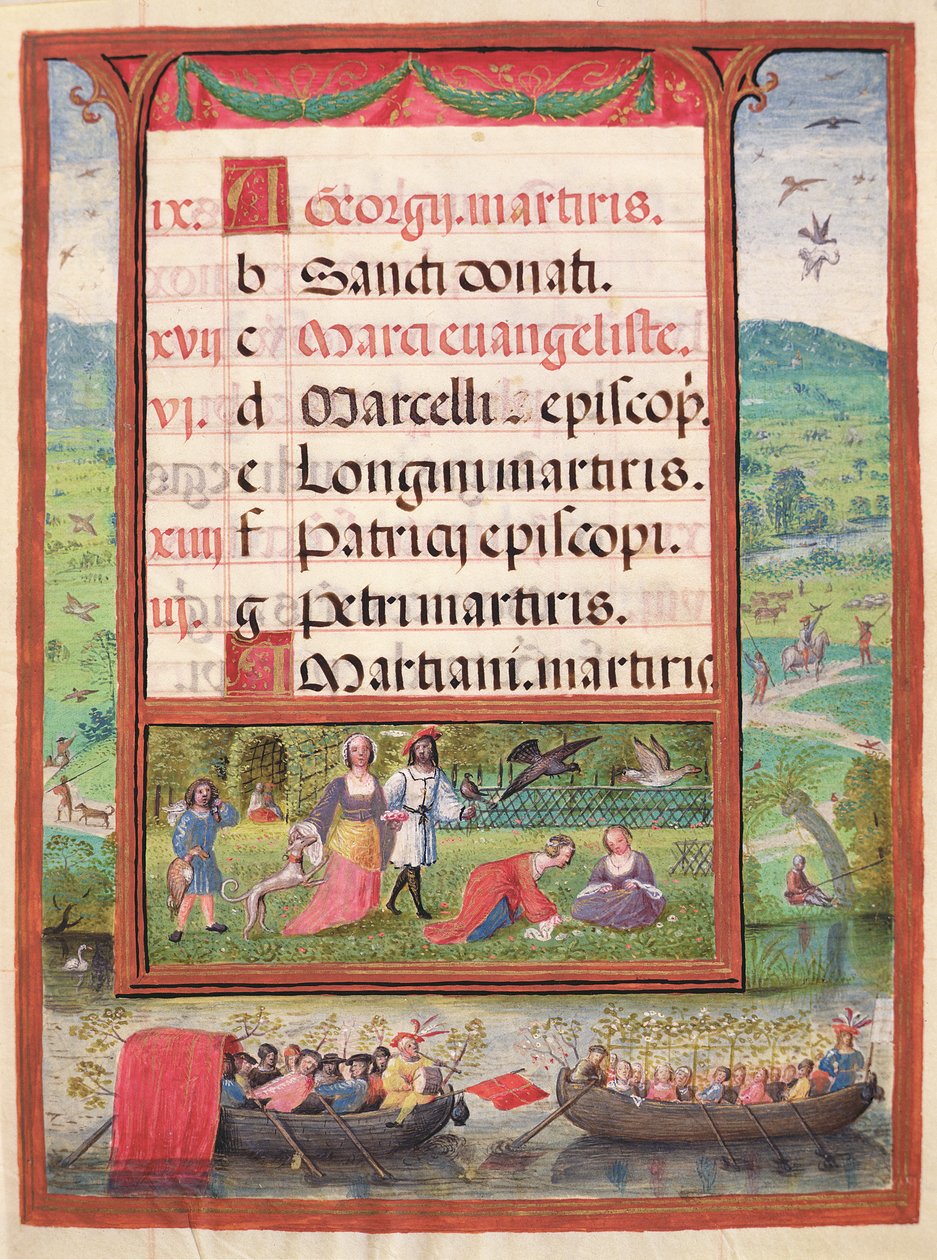 ix. A Georgij. martiris.
b Sancti donati.
xvij c Marci euangeliste.
vi. d Marcelli episcop̛.
e Longini martiris.
xiiij f Patricij episcopi.
iij. g Petri martiris.
A Martiani. martiris